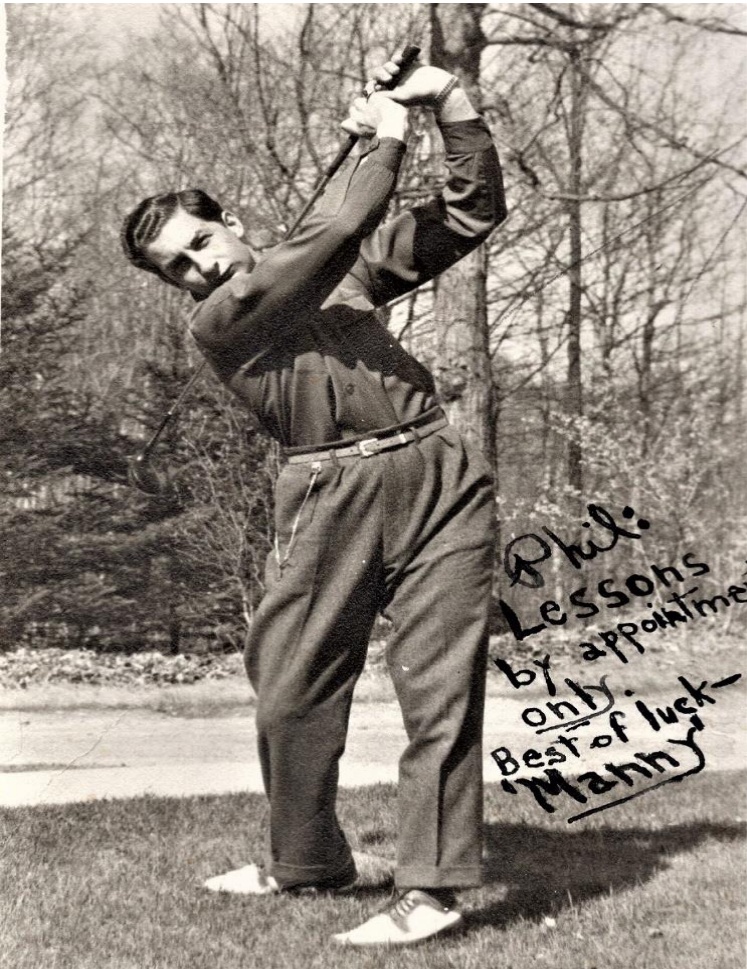 Phil:
Lessons
by appointme
only.
Best of luck-
'Manny'